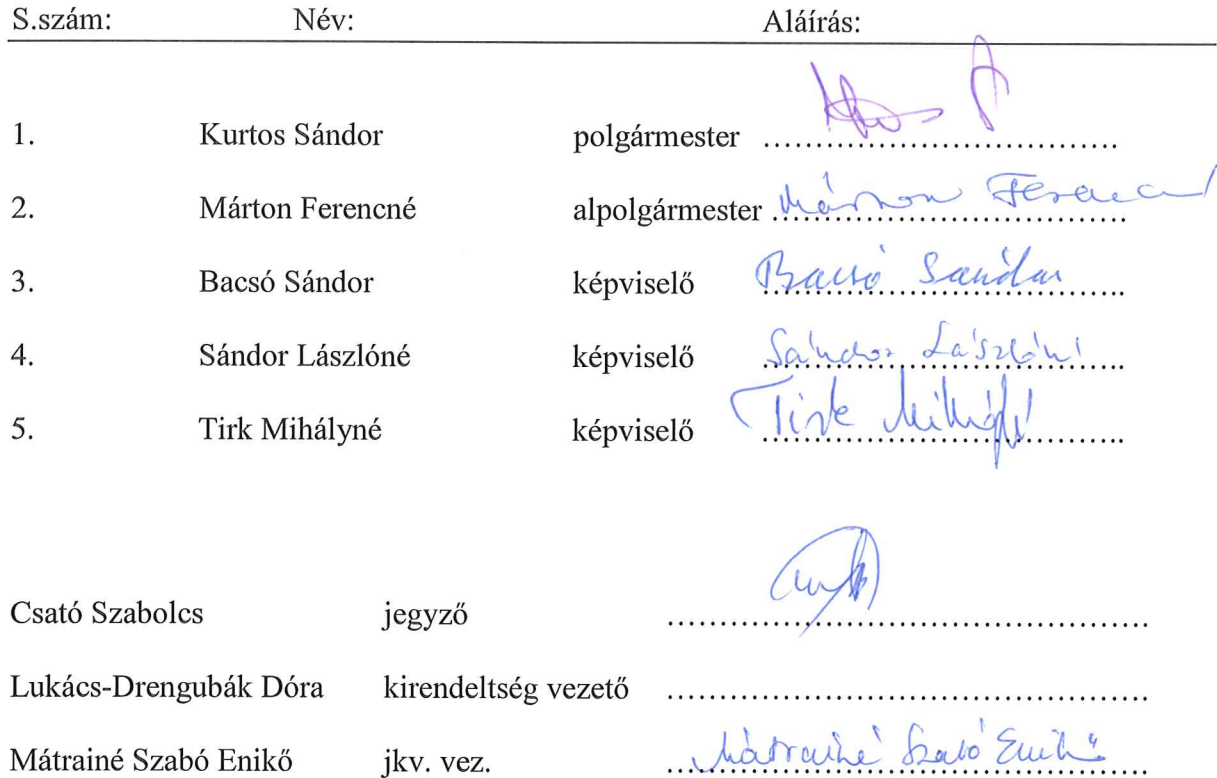 S.szám: Név: Aláírás:
1. Kurtos Sándor polgármester ……………………………
2. Márton Ferencné alpolgármester …………………………… Márton Ferencné
3. Bacsó Sándor képviselő …………………………… Bacsó Sándor
4. Sándor Lászlóné képviselő …………………………… Sándor Lászlóné
5. Tirk Mihályné képviselő …………………………… Tirk Mihályné
Csató Szabolcs jegyző ……………………………………
Lukács-Drengubák Dóra kirendeltség vezető ……………………………………
Mátrainé Szabó Enikő jkv. vez. …………………………………… Mátrainé Szabó Enikő